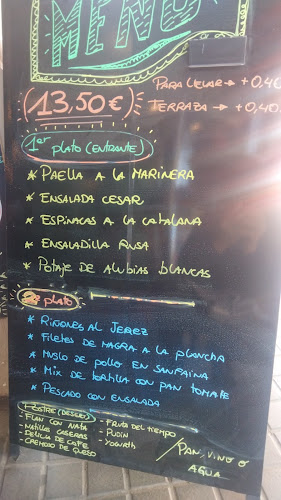 MENÚ
13,50€
PARA LLEVAR → +0,40
TERRAZA → +0,40
1er PLATO (ENTRANTE)
* PAELLA A LA MARINERA
* ENSALADA CESAR
* ESPINACAS A LA CATALANA
* ENSALADILLA RUSA
* POTAJE DE ALUBIAS BLANCAS
PLATO
* RIÑONES AL JEREZ
* FILETES DE MAGRA A LA PLANCHA
* MUSLO DE POLLO EN SANFAINA
* MIX DE TORTILLA CON PAN TOMATE
* PESCADO CON ENSALADA
POSTRE
- FLAN CON NATA
- NATILLA CASERAS
- DELICIA DE CAFE
- CREMOSO DE QUESO
- FRUTA DEL TIEMPO
- PUDIN
- YOGURTH
PAN, VINO O
AGUA